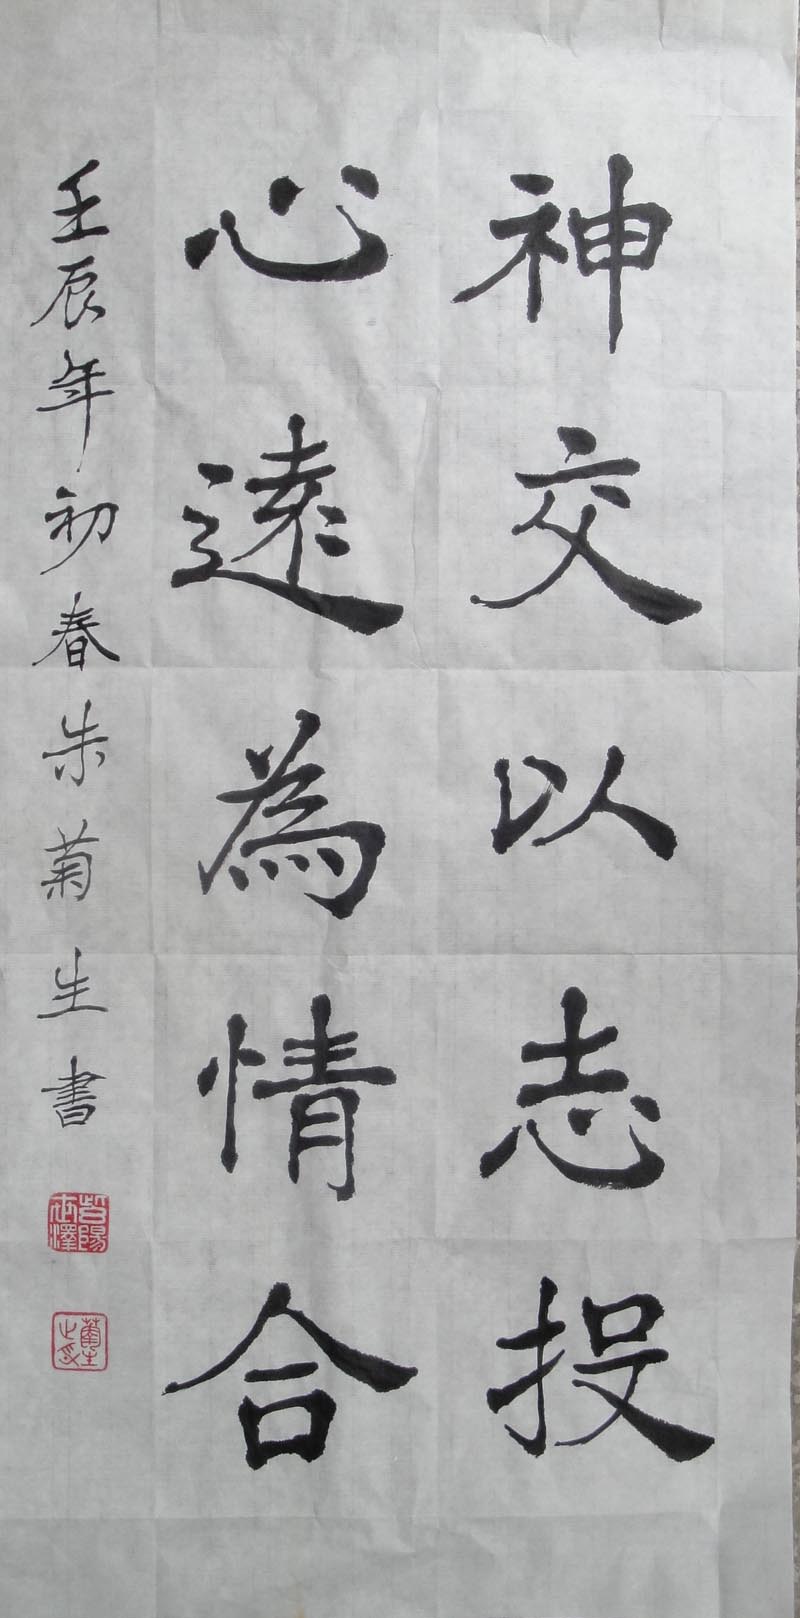 神交以志投
心遠為情合
壬辰年初春朱菊生書